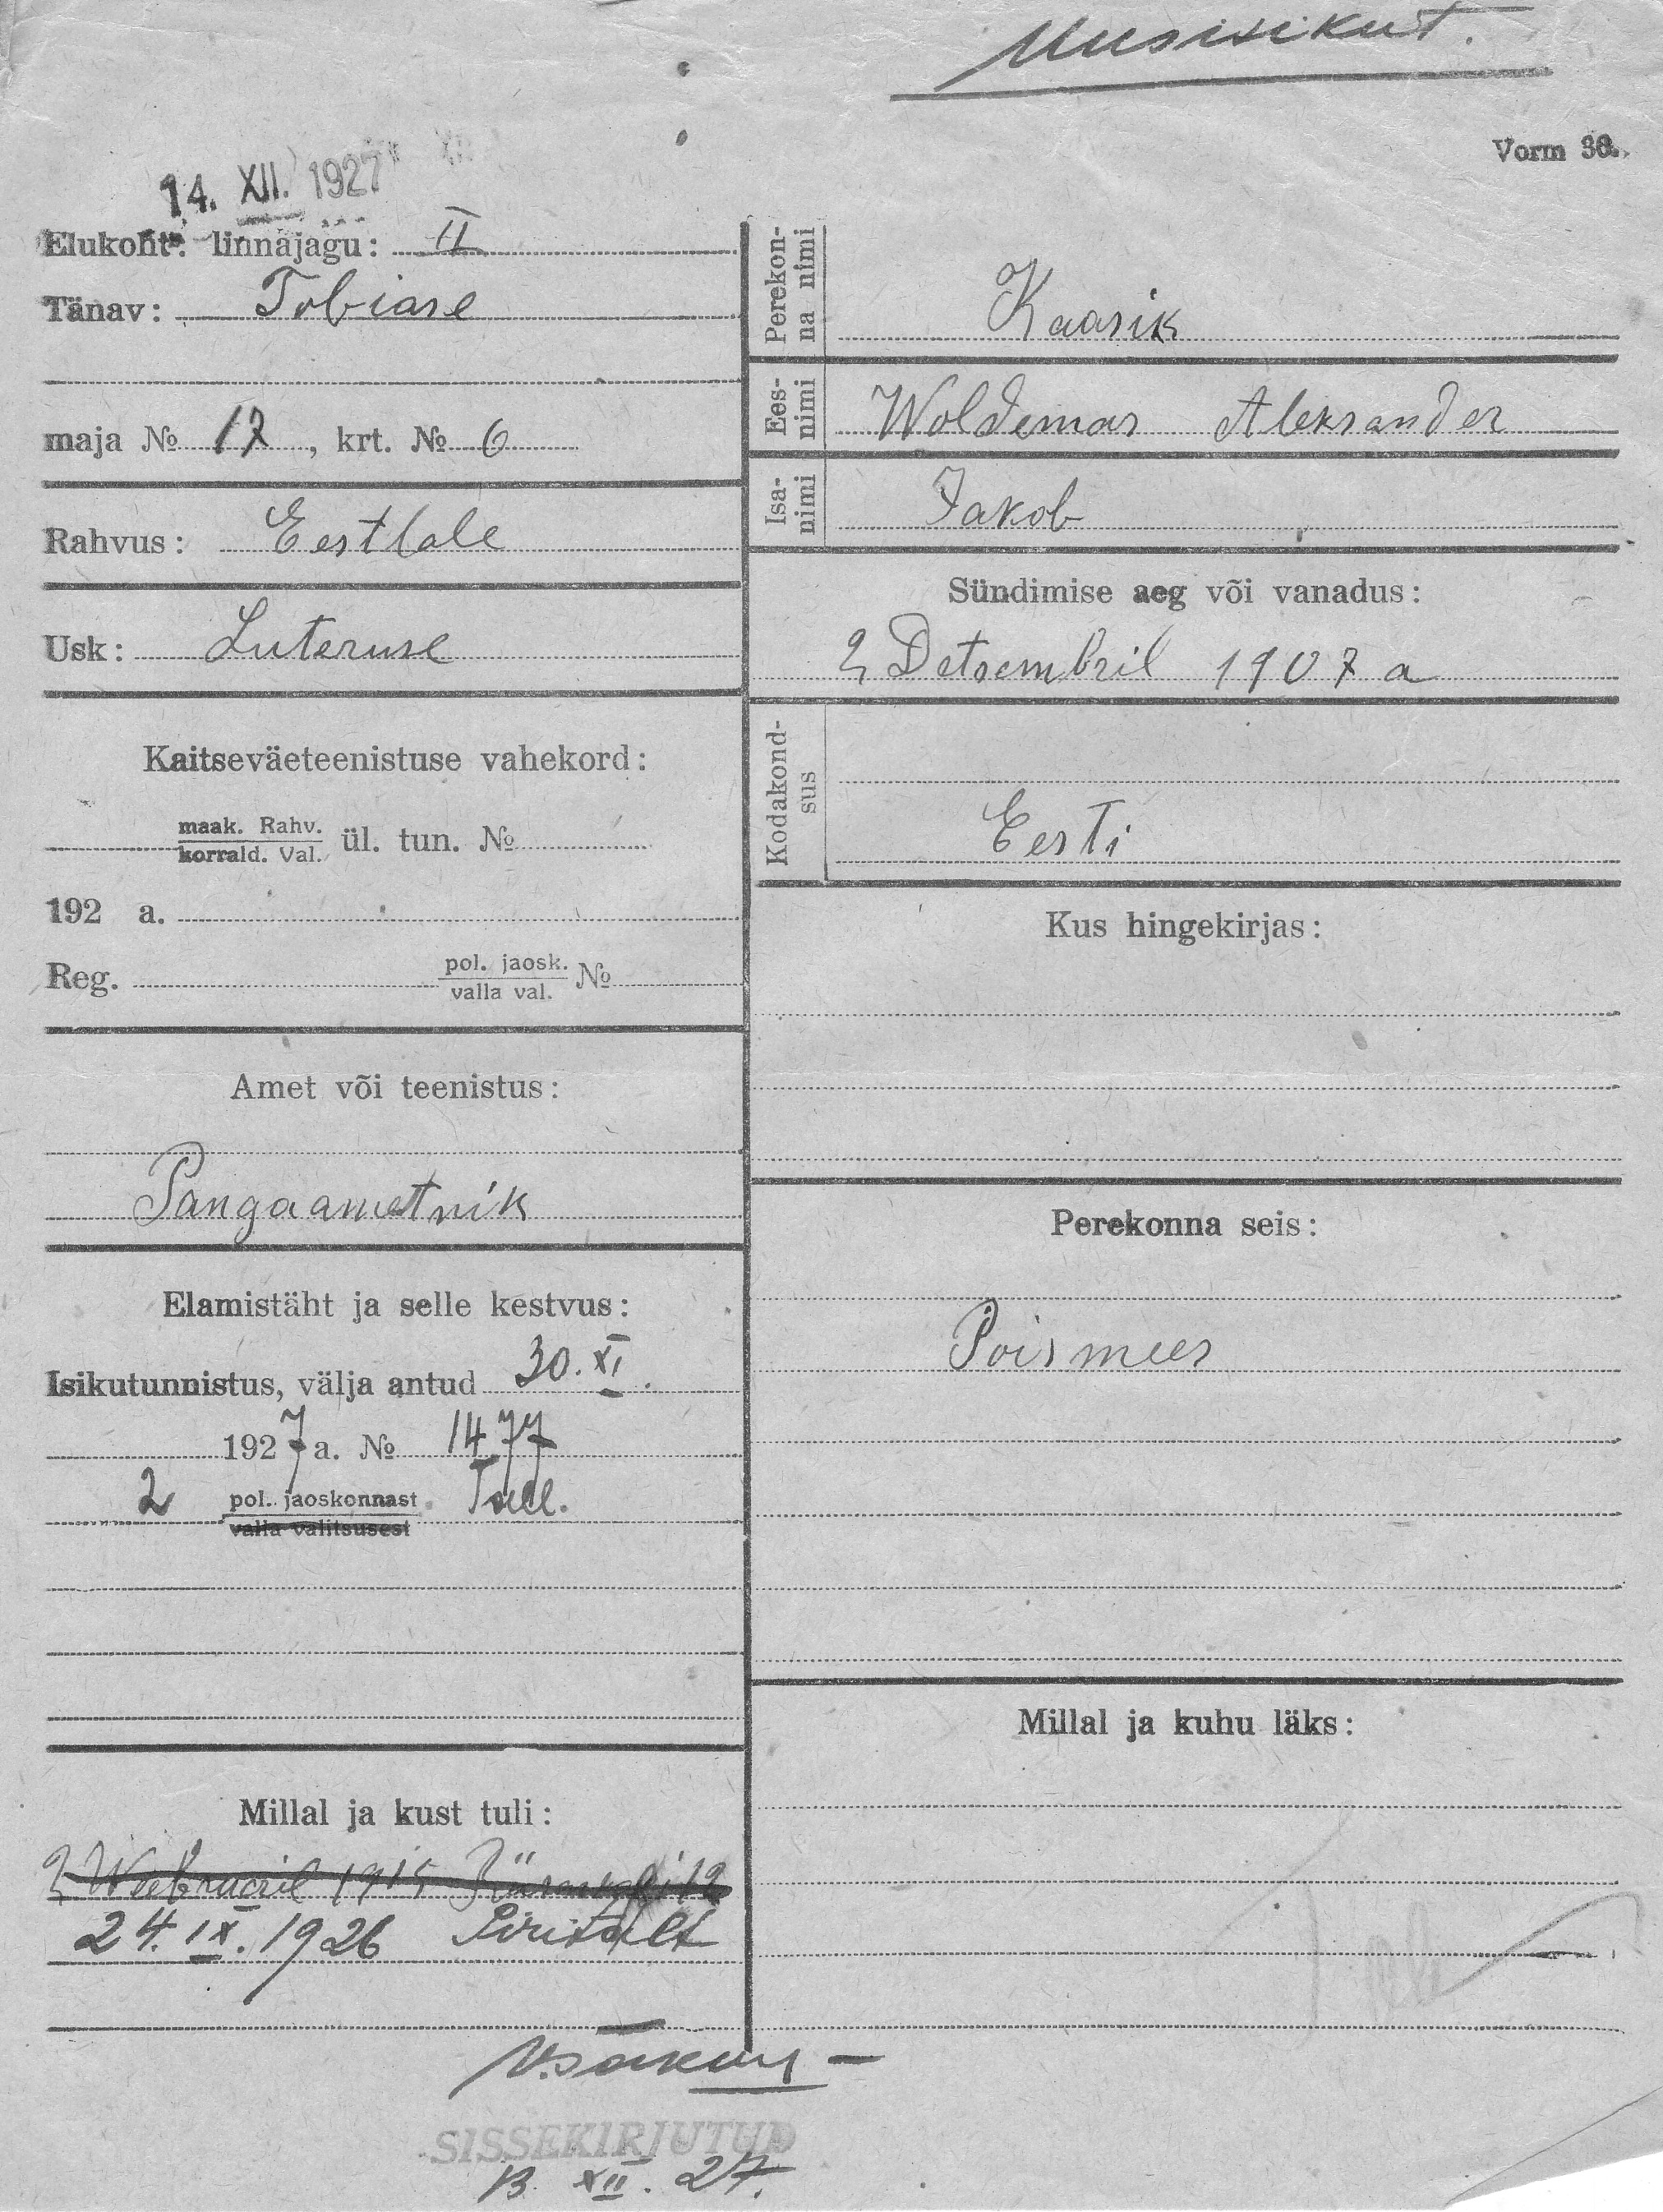 Uus isikut.
Vorm 36.
14. XII. 1927
Elukoht: linnajagu: II
Tänav: Tobiase
maja № 17, krt. № 6
Rahvus: Eestlale
Usk: Luteruse
Kaitseväeteenistuse vahekord:
maak. Rahv.
korrald. Val. ül. tun. №
192 a.
Reg. pol. jaosk. №
valla val.
Amet või teenistus:
Pangaametnik
Elamistäht ja selle kestvus:
Isikutunnistus, välja antud 30. XI.
1927 a. № 1477
2 pol. jaoskonnast Tall.
valla valitsusest
Millal ja kust tuli:
2 Weebruaril 1915
24. IX. 1926 Piritalt
Perekonna nimi
Kaasik
Eesnimi
Woldemar Aleksander
Isanimi
Jakob
Sündimise aeg või vanadus:
2 Detsembril 1907 a
Kodakondsus
Eesti
Kus hingekirjas:
Perekonna seis:
Poismees
Millal ja kuhu läks:
SISSEKIRJUTUD
13. XII. 27.